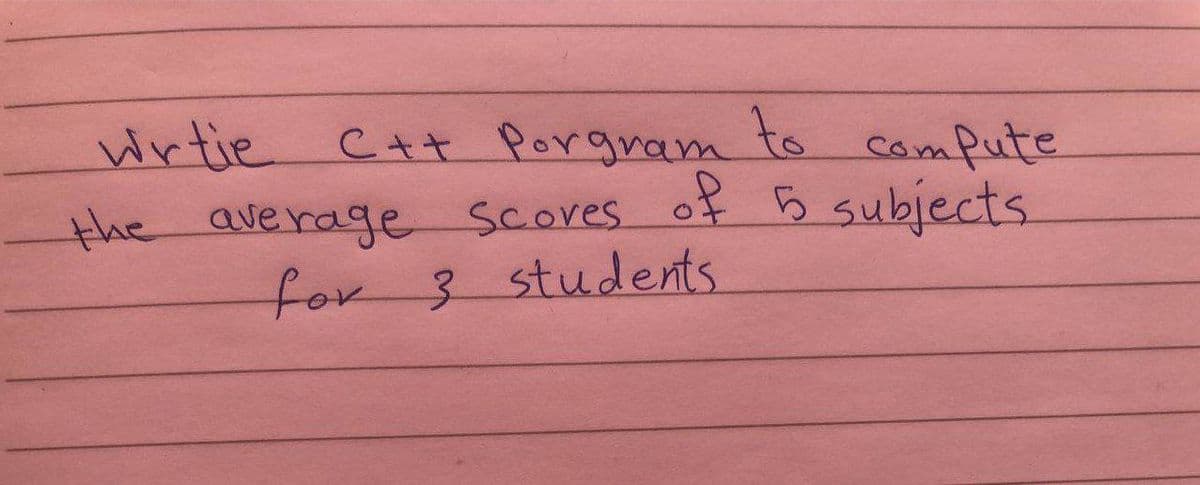 Wrtie C++ Porgram to compute
the average scores of 5 subjects
for 3 students